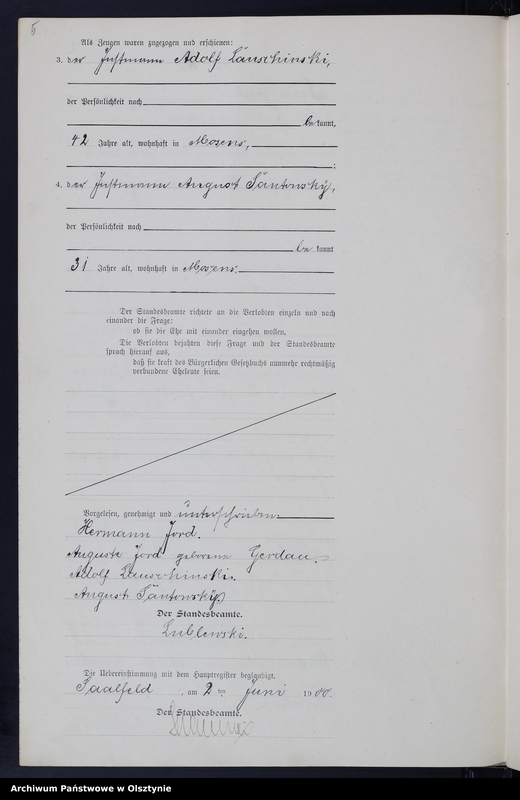 5
Als Zeugen waren zugezogen und erschienen:
3. der Instmann Adolf Läuschinski,
der Persönlichkeit nach
be kannt,
42 Jahre alt, wohnhaft in Mosens,
;
4. der Instmann August Säntowsky,
der Persönlichkeit nach
be kannt
31 Jahre alt, wohnhaft in Mosens.
Der Standesbeamte richtete an die Verlobten einzeln und nach
einander die Frage:
ob sie die Ehe mit einander eingehen wollen.
Die Verlobten bejahten diese Frage und der Standesbeamte
sprach hierauf aus,
daß sie kraft des Bürgerlichen Gesetzbuchs nunmehr rechtmäßig
verbundene Eheleute seien.
Vorgelesen, genehmigt und unterschrieben
Hermann Jord.
Auguste Jord geborene Gerdau.
Adolf Läuschinski.
August Säntowsky.
Der Standesbeamte.
Lublewski.
Die Uebereinstimmung mit dem Hauptregister beglaubigt.
Saalfeld, am 2 ten Juni 1900.
Der Standesbeamte.
Archiwum Państwowe w Olsztynie